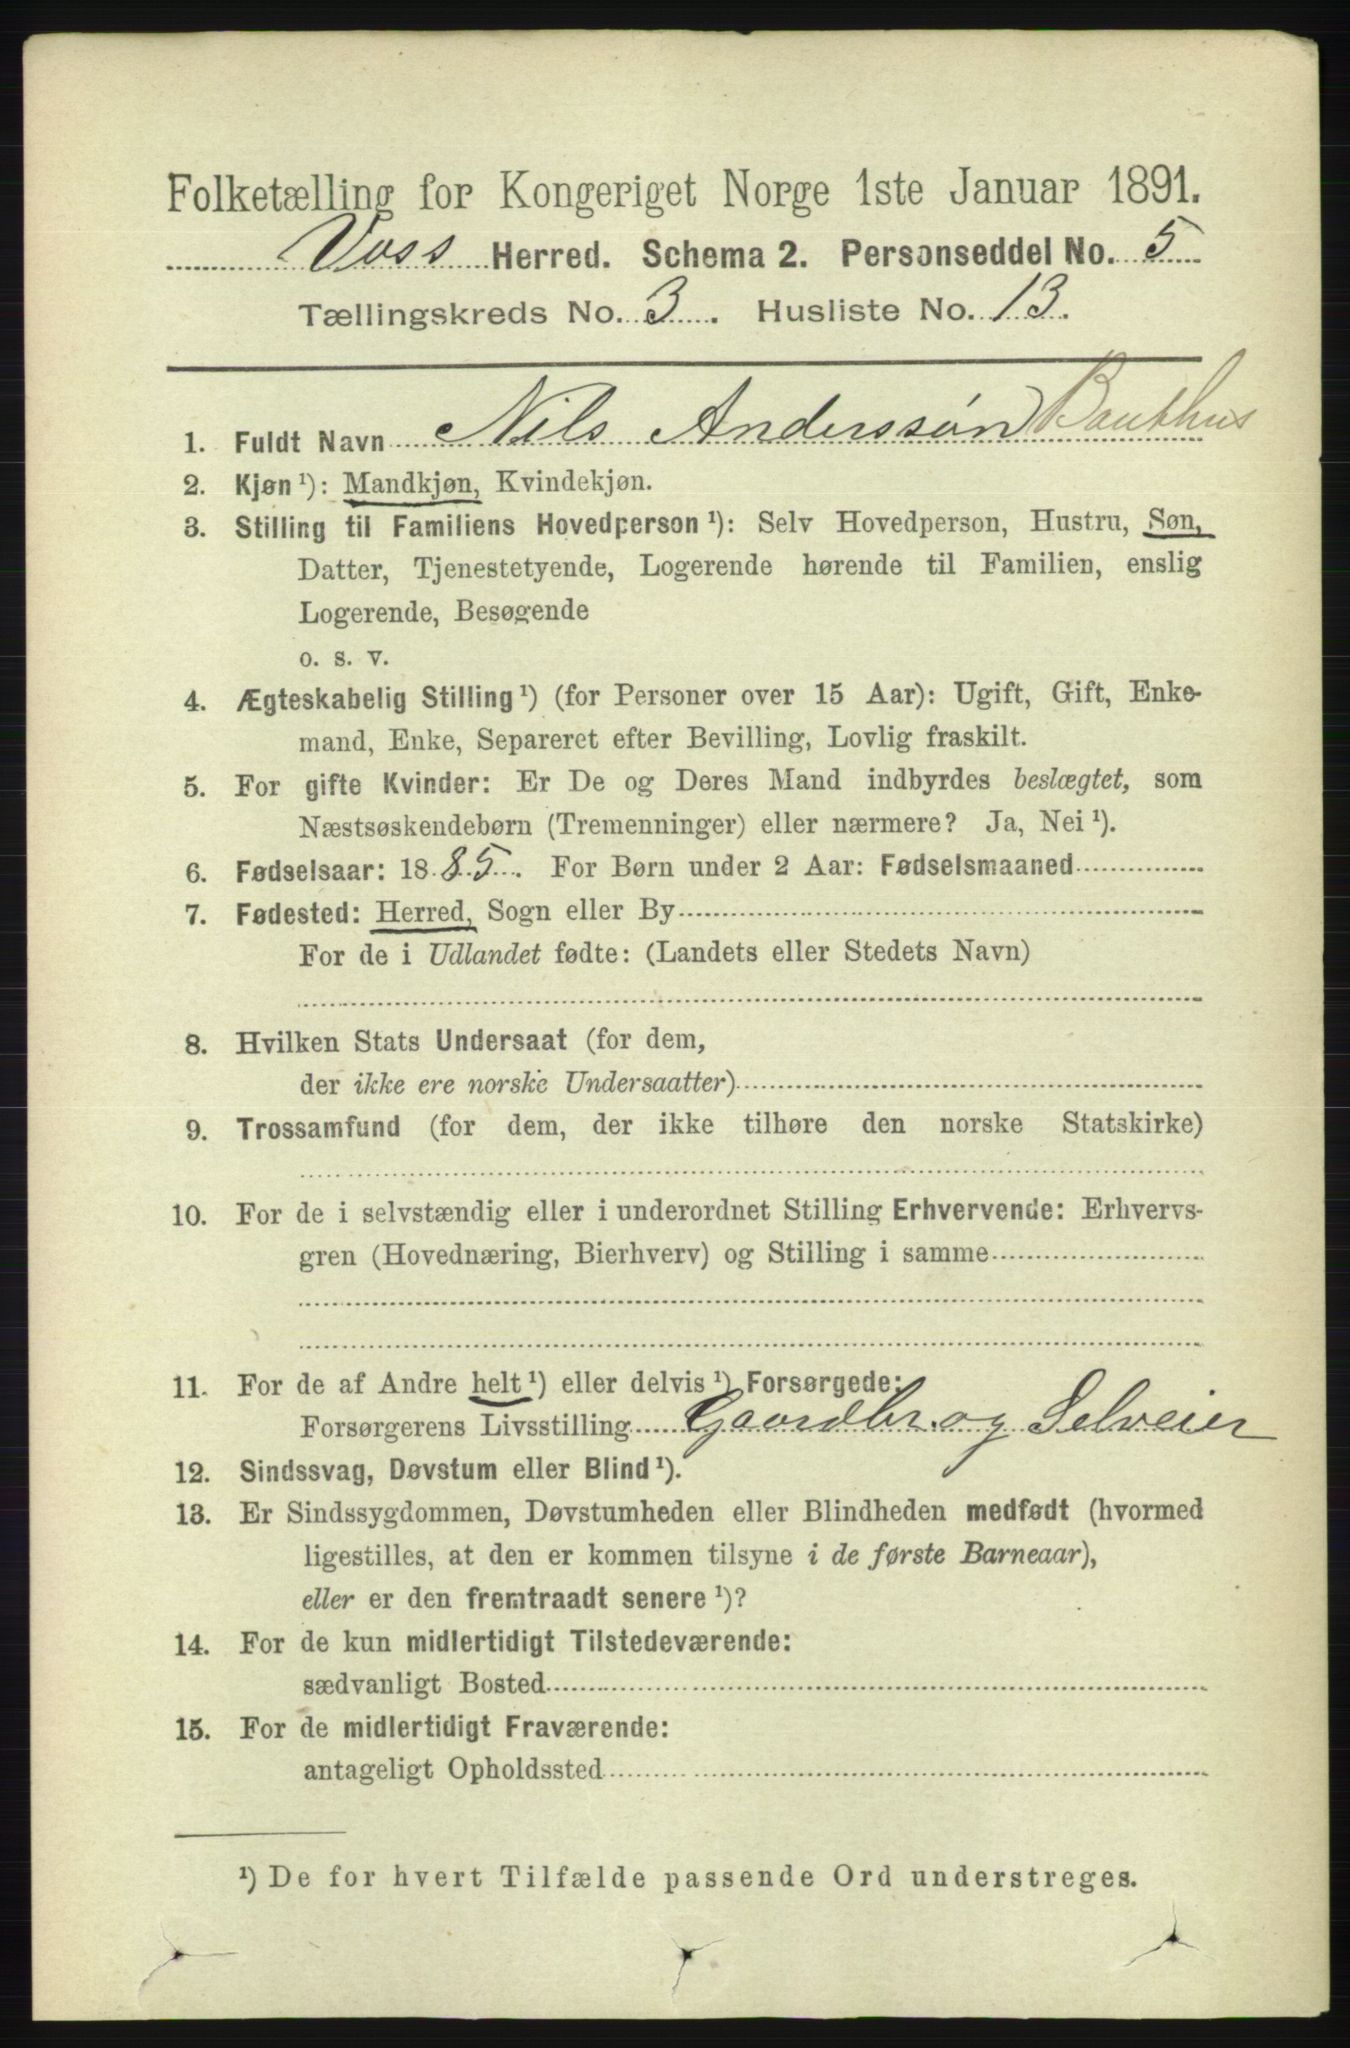 Folketælling for Kongeriget Norge 1ste Januar 1891.
Voss Herred. Schema 2. Personseddel No. 5
Tællingskreds No. 3. Husliste No. 13.
1. Fuldt Navn Nils Anderssøn
2. Kjøn ¹): Mandkjøn, Kvindekjøn.
3. Stilling til Familiens Hovedperson ¹): Selv Hovedperson, Hustru, Søn,
Datter, Tjenestetyende, Logerende hørende til Familien, enslig
Logerende, Besøgende
o. s. v.
4. Ægteskabelig Stilling ¹) (for Personer over 15 Aar): Ugift, Gift, Enke-
mand, Enke, Separeret efter Bevilling, Lovlig fraskilt.
5. For gifte Kvinder: Er De og Deres Mand indbyrdes beslægtet, som
Næstsøskendebørn (Tremenninger) eller nærmere? Ja, Nei ¹).
6. Fødselsaar: 1885. For Børn under 2 Aar: Fødselsmaaned
7. Fødested: Herred, Sogn eller By
For de i Udlandet fødte: (Landets eller Stedets Navn)
8. Hvilken Stats Undersaat (for dem,
der ikke ere norske Undersaatter)
9. Trossamfund (for dem, der ikke tilhøre den norske Statskirke)
10. For de i selvstændig eller i underordnet Stilling Erhvervende: Erhvervs-
gren (Hovednæring, Bierhverv) og Stilling i samme
11. For de af Andre helt ¹) eller delvis ¹) Forsørgede:
Forsørgerens Livsstilling Gaardbr. og Selveier
12. Sindssvag, Døvstum eller Blind ¹).
13. Er Sindssygdommen, Døvstumheden eller Blindheden medfødt (hvormed
ligestilles, at den er kommen tilsyne i de første Barneaar),
eller er den fremtraadt senere ¹)?
14. For de kun midlertidigt Tilstedeværende:
sædvanligt Bosted
15. For de midlertidigt Fraværende:
antageligt Opholdssted
¹) De for hvert Tilfælde passende Ord understreges.